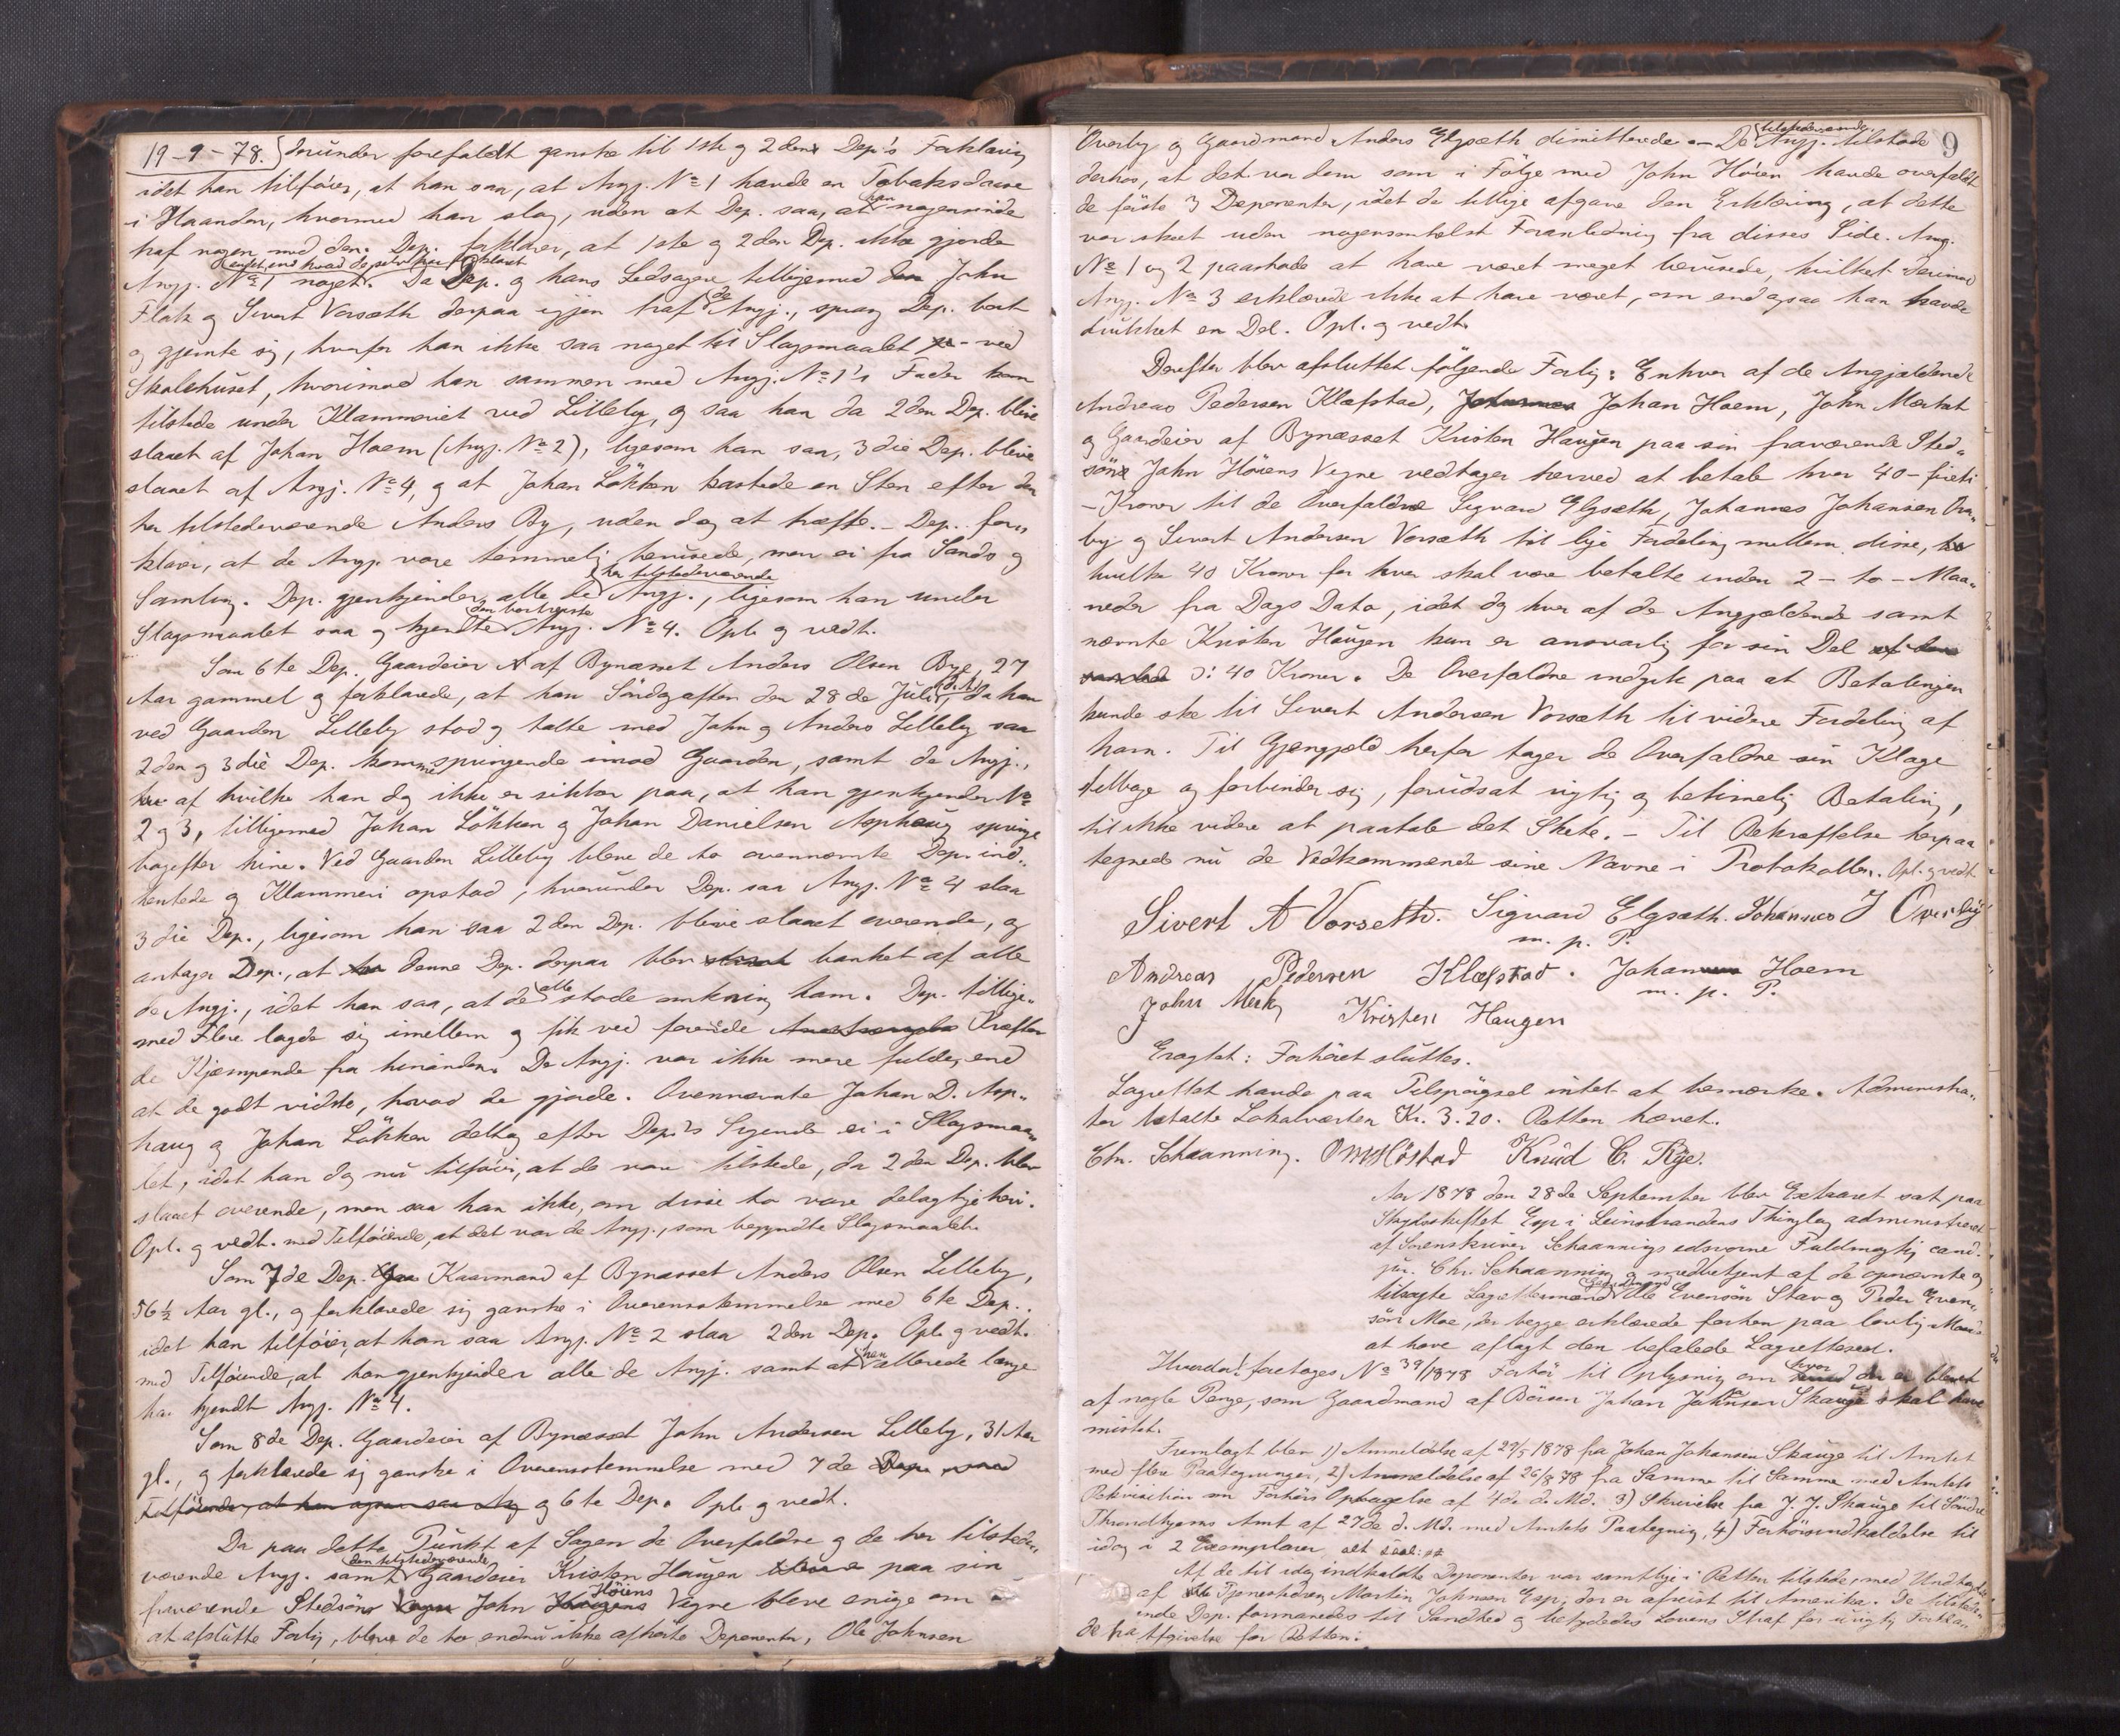 19-9-78. herunder forefaldt ganske til 1ste og 2den Dep's Forklaring
idet han tilføier, at han saa, at Angj. No 1 havde en Tobaksdaase
i Haanden, hvormed han slog, uden at Dep. saa, at han nogensinde
traf nogen med den. Dep. forklarer, at 1ste og 2den Dep. ikke gjorde
Angj. No 1 noget. Da Dep. og hans Ledsagere tilligemed John
Flak og Sivert Vorsæth derpaa igjen traf de Angj., sprang Dep. bort
og gjemte sig, hvorfor han ikke saa noget til Slagsmaalet ved
Skolehuset, hvorimod han sammen med Angj. No 1's Fader kom
tilstede under Klammeriet ved Lilleby, og saa han da 2den Dep. blive
slaaet af Johan Hoem (Angj. No 2), ligesom han saa, 3die Dep. blive
slaaet af Angj. No 4, og at Johan Løkken kastede en Sten efter den
her tilstedeværende Anders By, uden dog at træffe. - Dep. for-
klarer, at de Angj. vare temmelig berusede, men ei fra Sands og
Samling. Dep. gjenkjender alle de her tilstedeværende Angj., ligesom han under
Slagsmaalet saa og kjendte den bortreiste Angj. No 4. Opl. og vedt.
Som 6te Dep. Gaardeier af Bynæsset Anders Olsen Bye, 27
Aar gammel og forklarede, at han Søndag aften den 28de Juli d. A., da han
ved Gaarden Lilleby stod og talte med John og Anders Lilleby saa
2den og 3die Dep. komme springende imod Gaarden, samt de Angj.,
af hvilke han dog ikke er sikker paa, at han gjenkjender No
2 og 3, tilligemed Johan Løkken og Johan Danielsen Asphaug springe
bagefter hine. Ved Gaarden Lilleby bleve de to ovennævnte Dep. ind-
hentede og Klammeri opstod, hvorunder Dep. saa Angj. No 4 slaa
3die Dep., ligesom han saa 2den Dep. blive slaaet overende, og
antager Dep., at denne Dep. derpaa blev banket af alle
de Angj., idet han saa, at de alle stode omkring ham. Dep. tillige-
med Flere lagde sig imellem og fik ved forenede Kræfter
de Kjæmpende fra hinanden. De Angj. var ikke mere fulde, end
at de godt vidste, hvad de gjorde. Ovennævnte Johan D. Asp-
haug og Johan Løkken deltog efter Dep.'s Sigende ei i Slagsmaa-
let, idet han dog nu tilføier, at de vare tilstede, da 2den Dep. blev
slaaet overende, men saa han ikke, om disse to vare delagtige heri.
Opl. og vedt. med Tilføiende, at det var de Angj., som begyndte Slagsmaalet.
Som 7de Dep. Kaarmand af Bynæsset Anders Olsen Lilleby,
56 ½ Aar gl., og forklarede sig ganske i Overensstemmelse med 6te Dep.,
idet han tilføier, at han saa Angj. No 2 slaa 2den Dep. Opl. og vedt.
med Tilføiende, at han gjenkjender alle de Angj. samt at han allerede længe
har kjendt Angj. No 4.
Som 8de Dep. Gaardeier af Bynæsset John Andersen Lilleby, 31 Aar
gl., og forklarede sig ganske i Overensstemmelse med 7de
og 6te Dep. Opl. og vedt.
Da paa dette Punkt af Sagen de Overfaldne og de her tilstede-
værende Angj. samt den tilstedeværende Gaardeier Kristen Haugen paa sin
fraværende Stedsøns John Høiens Vegne bleve enige om
at afslutte Forlig, bleve de to endnu ikke afhørte Deponenter, Ole Johnsen
9
Overby og Gaardmand Anders Elgsæth dimitterede. - De tilstedeværende Angj. tilstode
derhos, at det var dem som i Følge med John Høien havde overfaldt
de første 3 Deponenter, idet de tillige afgave den Erklæring, at dette
var skeet uden nogensomhelst Foranledning fra disses Side. Ang.
No 1 og 2 paastode at have været meget berusede, hvilket derimod
Angj. No 3 erklærede ikke at have været, om end ogsaa han havde
drukket en Del. Opl. og vedt.
Derefter blev afsluttet følgende Forlig: Enhver af de Angjældende
Andreas Pedersen Klæfstad, Johan Hoem, John Merket
og Gaardeier af Bynæsset Kristen Haugen paa sin fraværende Sted-
søns John Høiens Vegne vedtager herved at betale hver 40 - firti
- Kroner til de Overfaldne Sigvard Elgsæth, Johannes Johansen Over-
by og Sivert Andersen Vorsæth til lige Fordeling mellem disse,
hvilke 40 Kroner for hver skal være betalte inden 2 - to - Maa-
neder fra Dags Dato, idet dog hver af de Angjældende samt
nævnte Kristen Haugen kun er ansvarlig for sin Del
ɔ: 40 Kroner. De Overfaldne indgik paa at Betalingen
kunde ske til Sivert Andersen Vorsæth til videre Fordeling af
ham. Til Gjengjæld herfor tager de Overfaldne sin Klage
tilbage og forbinder sig, forudsat rigtig og betimelig Betaling,
til ikke videre at paatale det Skete. - Til Bekræftelse herpaa
tegnede nu de Vedkommende sine Navne i Protokollen. Opl. og vedt.
Sivert A Vorseth. Sigvard Elgsæth. Johannes J Overby
m. p. P.
Andreas Pedersen Klæfstad. Johan Hoem
m. p. P.
John Merk Kristen Haugen
Eragtet: Forhøret sluttes.
Lagrettet havde paa Tilspørgsel intet at bemærke. Administra-
tor betalte Lokalværten Kr. 3.20. Retten hævet.
Chr. Schaanning. Knud C. Rye.
Aar 1878 den 28de September blev Extraret sat paa
Skydsskiftet Esp i Leinstrandens Thinglag administreret
af Sorenskriver Schaannings edsvorne Fuldmægtig cand.
jur. Chr. Schaanning og medbetjent af de opnævnte og
tilsagte Lagrettemænd Ole Evensøn Stav og Peder Even-
søn Moe, der begge erklærede forhen paa lovlig Maade
at have aflagt den befalede Lagretteed.
Hvorda! foretoges No 39/1878 Forhør til Oplysning om hvor der er blevet
af nogle Penge, som Gaardmand af Børsen Johan Johansen Skauge skal have
mistet.
Fremlagt blev 1) Anmeldelse af 29/5 1878 fra Johan Johansen Skauge til Amtet
med flere Paategninger, 2) Anmeldelse af 26/8 78 fra Samme til Samme med Amtets
Rekvisition om Forhørs Optagelse af 4de d. Md. 3) Skrivelse fra J. J. Skauge til Søndre
Throndhjems Amt af 27de d. Md. med Amtets Paategning, 4) Forhørsindkaldelse til
idag i 2 Exemplarer, alt saal:
Af de til idag indkaldte Deponenter var samtlige i Retten tilstede, med Undtagelse
af Tjenestedreng Martin Johnsen Esp, der er afreist til Amerika. De tilstedevær-
ende Dep. formanedes til Sandhed og betydedes Lovens Straf for urigtig Forklar-
Afgivelse for Retten: